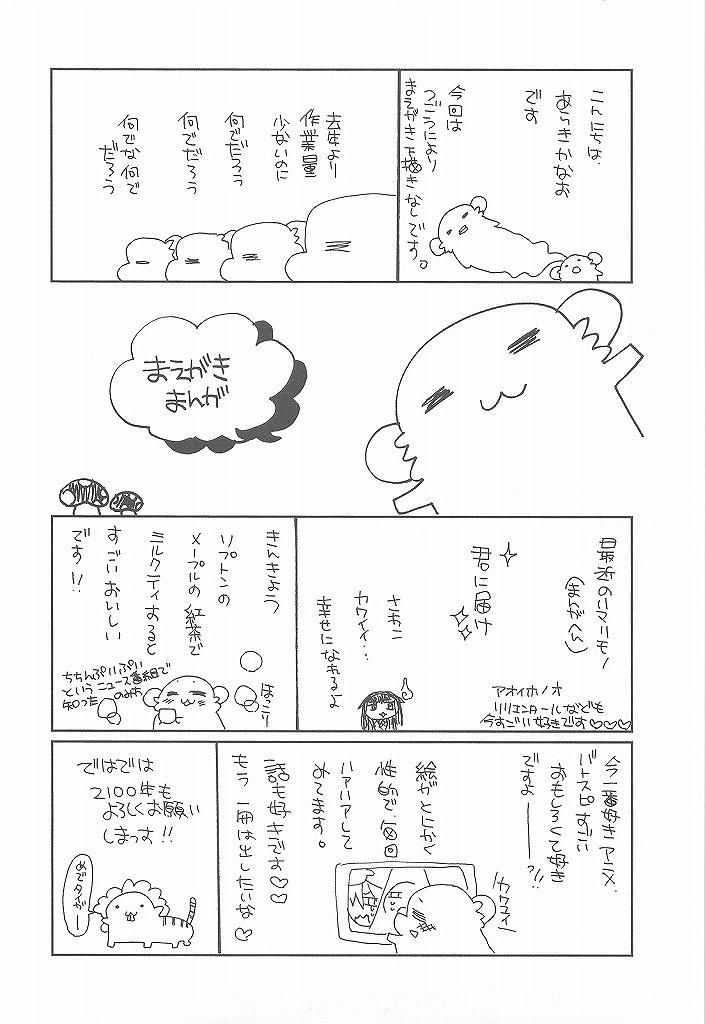 こんにちは
あらきかなお
です
今回は
つごうにより
まえがき下描きなしです。
去年より
作業量
少ないのに
何でだろう
何でだろう
何でな何で
だろう
まえがき
まんが
最近のハマリモノ
(まんがへん)
君に届け
さわこ
カワイイ…
幸せになれるよ
アオイホノオ
リリエンタールなども
今すごい好きです♡♡♡
きんきょう
ソプトンの
メープルの紅茶で
ミルクティすると
すごいおいしい
です!!
ちちんぷいぷい
というニュース番組で
知った
ほっこり
今一番好きアニメ
バトスピすごい
おもしろくて好き
ですよーーっ!!
絵がとにかく
性的で、毎回
ハァハァして
みてます。
話も好きです♡♡
もう一冊は出したいな♡
カワユイ
ではでは
2100年も
よろしくお願い
しまっす!!
めでタイガー